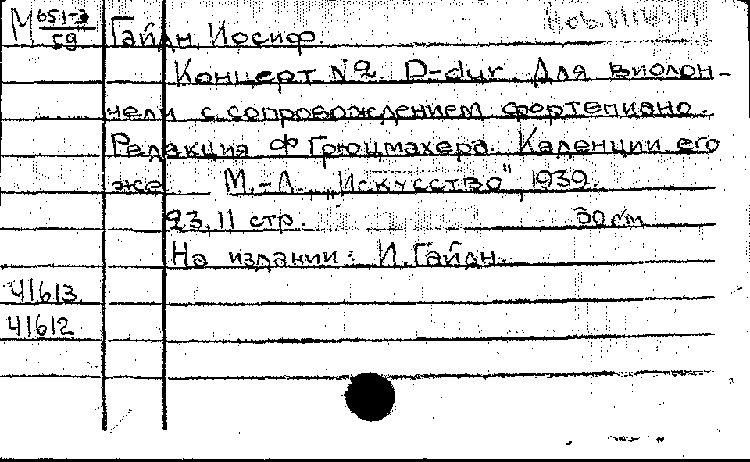 М 651-3
59
Гайдн, Иосиф.
Концерт N2. D-dur. Для виолон-
чели с сопровождением фортепиано.
Редакция Ф Грюцмахера. Каденции его
же М.-Л., „Искусство", 1939.
23, 11 стр. 30 см
На издании: И. Гайдн.
41613
41612